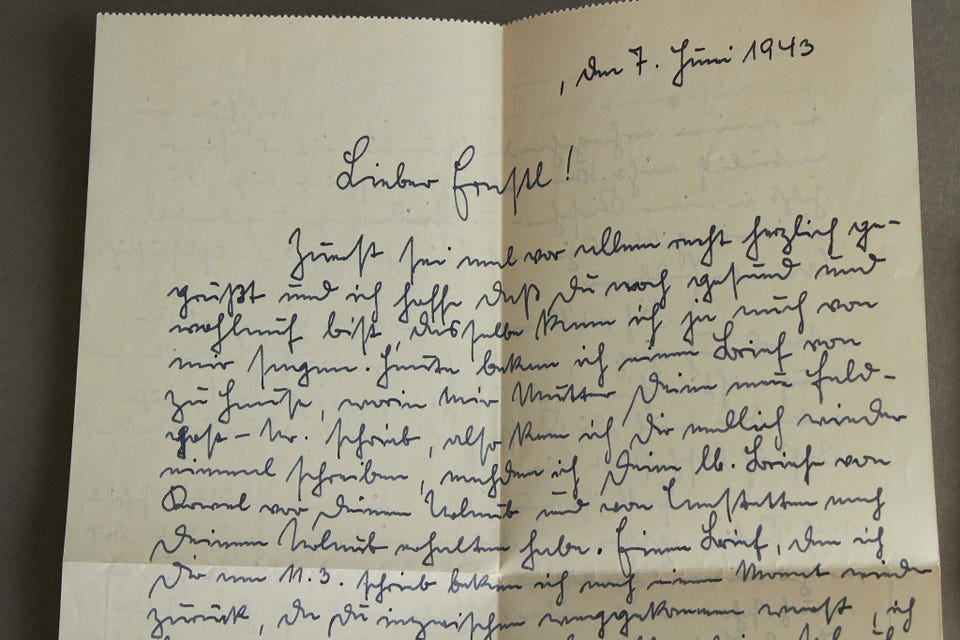 , den 7. Juni 1943
Lieber Ernstl!
Zuerst sei mal vor allem recht herzlich ge-
grüßt und ich hoffe daß Du noch gesund und
wohlauf bist, dasselbe kann ich ja auch von
mir sagen. Heute bekam ich einen Brief von
zu Hause, worin mir Mutter Deine neue Feld-
post-Nr. schrieb, also kann ich Dir endlich wieder
einmal schreiben, nachdem ich Deine lb. Briefe von
vor Deinem Urlaub und von nach
Deinem Urlaub erhalten habe. Einen Brief, den ich
Dir am 11.3. schrieb bekam ich nach einem Monat wieder
zurück, da Du inzwischen weggekommen warst, ich